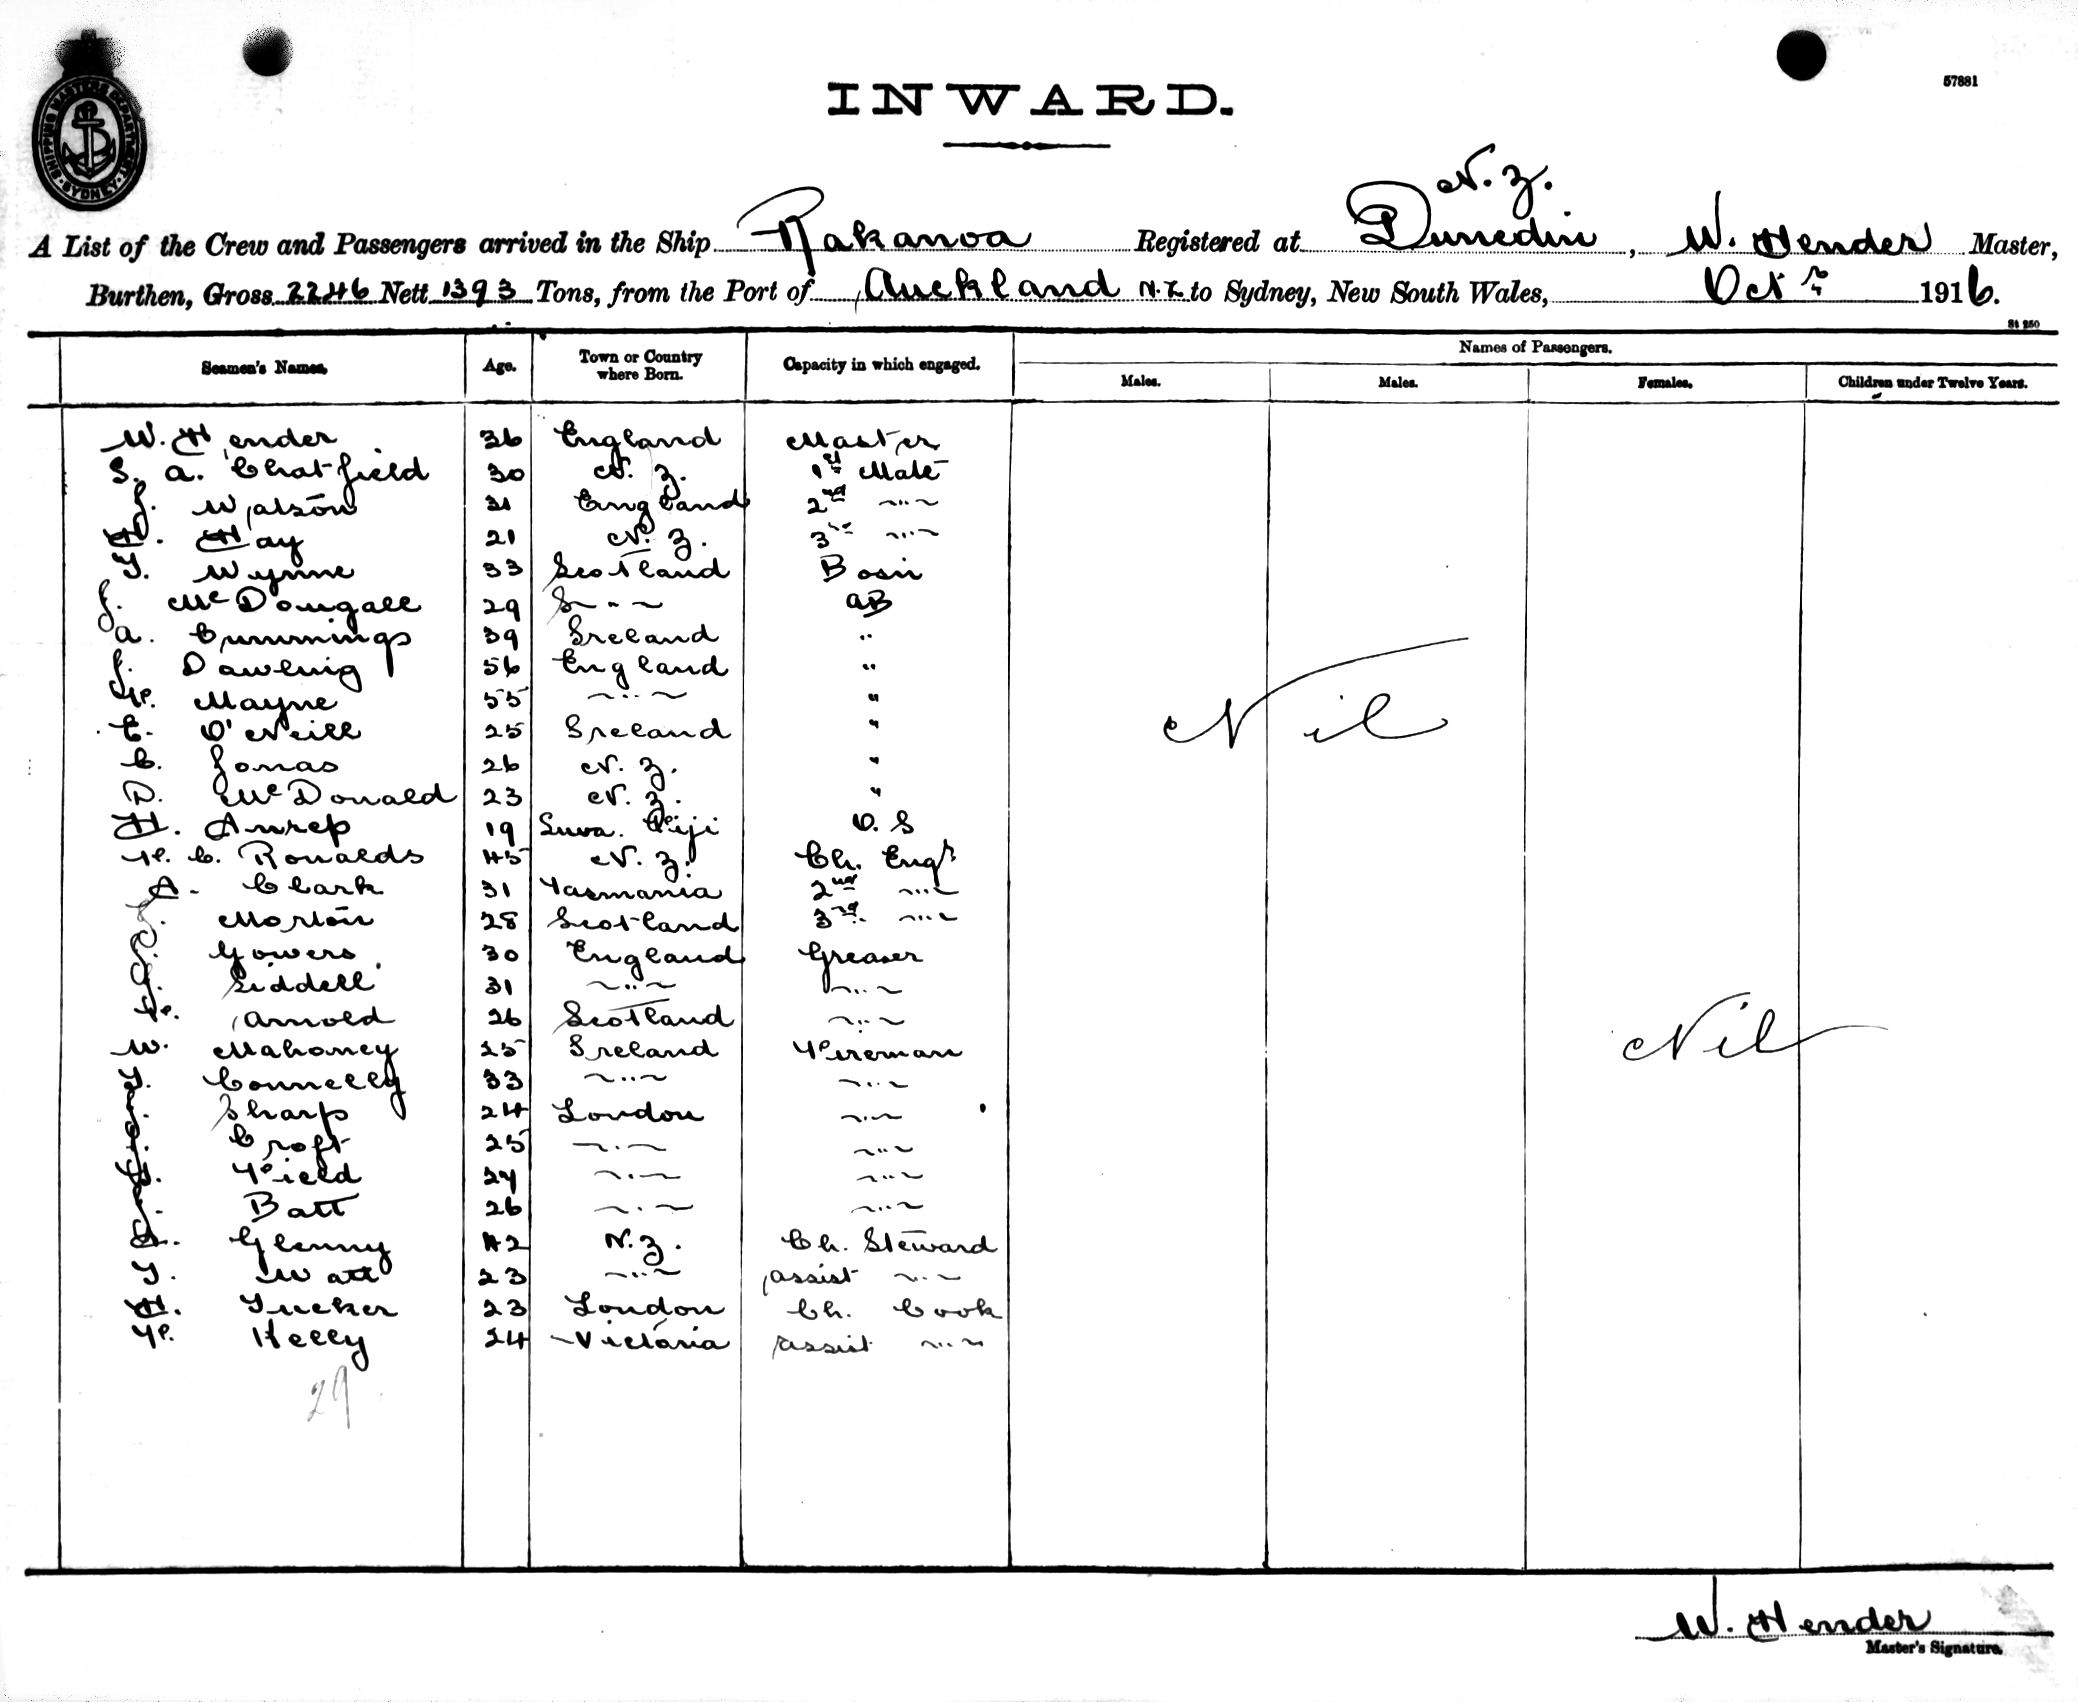 SHIPPING MASTERS DEPARTMENT
SYDNEY
57881
INWARD.
N.Z.
A List of the Crew and Passengers arrived in the Ship Rakanoa Registered at Dunedin, W. Hender Master,
Burthen, Gross 2246 Nett 1393 Tons, from the Port of Auckland N.Z to Sydney, New South Wales, Oct 1916.
St 250
Seamen's Names. Age. Town or Country where Born. Capacity in which engaged. Names of Passengers.
Males. Males. Females. Children under Twelve Years.
W. Hender 36 England Master
S. A. Chatfield 30 N.Z. 1st Mate
J. Watson 31 England 2nd ~"~
H. Hay 21 N.Z. 3rd ~"~
T. Wynne 33 Scotland Bosn
J. McDougall 29 S~"~ AB
A. Cummings 39 Ireland "
J. Dawling 56 England "
F. Mayne 55 ~"~ "
E. O'Neill 25 Ireland "
C. Jonas 26 N.Z. "
D. McDonald 23 N.Z. "
H. Anrep 19 Suva. Fiji O.S
F. C. Ronalds 45 N.Z. Ch. Engr
A. Clark 31 Tasmania 2nd ~"~
J. Morton 28 Scotland 3rd ~"~
Gowers 30 England Greaser
J. Liddell 31 ~"~ ~"~
F. Arnold 26 Scotland ~"~
W. Mahoney 25 Ireland Fireman
T. Connelly 33 ~"~ ~"~
Sharp 24 London ~"~
Croft 25 ~"~ ~"~
Field 24 ~"~ ~"~
Batt 26 ~"~ ~"~
A. Glenny 42 N.Z. Ch. Steward
T. Watt 23 ~"~ assist ~"~
H. Tucker 23 London Ch. Cook
F. Kelly 24 Victoria assist ~"~
Nil
Nil
29
W. Hender
Master's Signature.